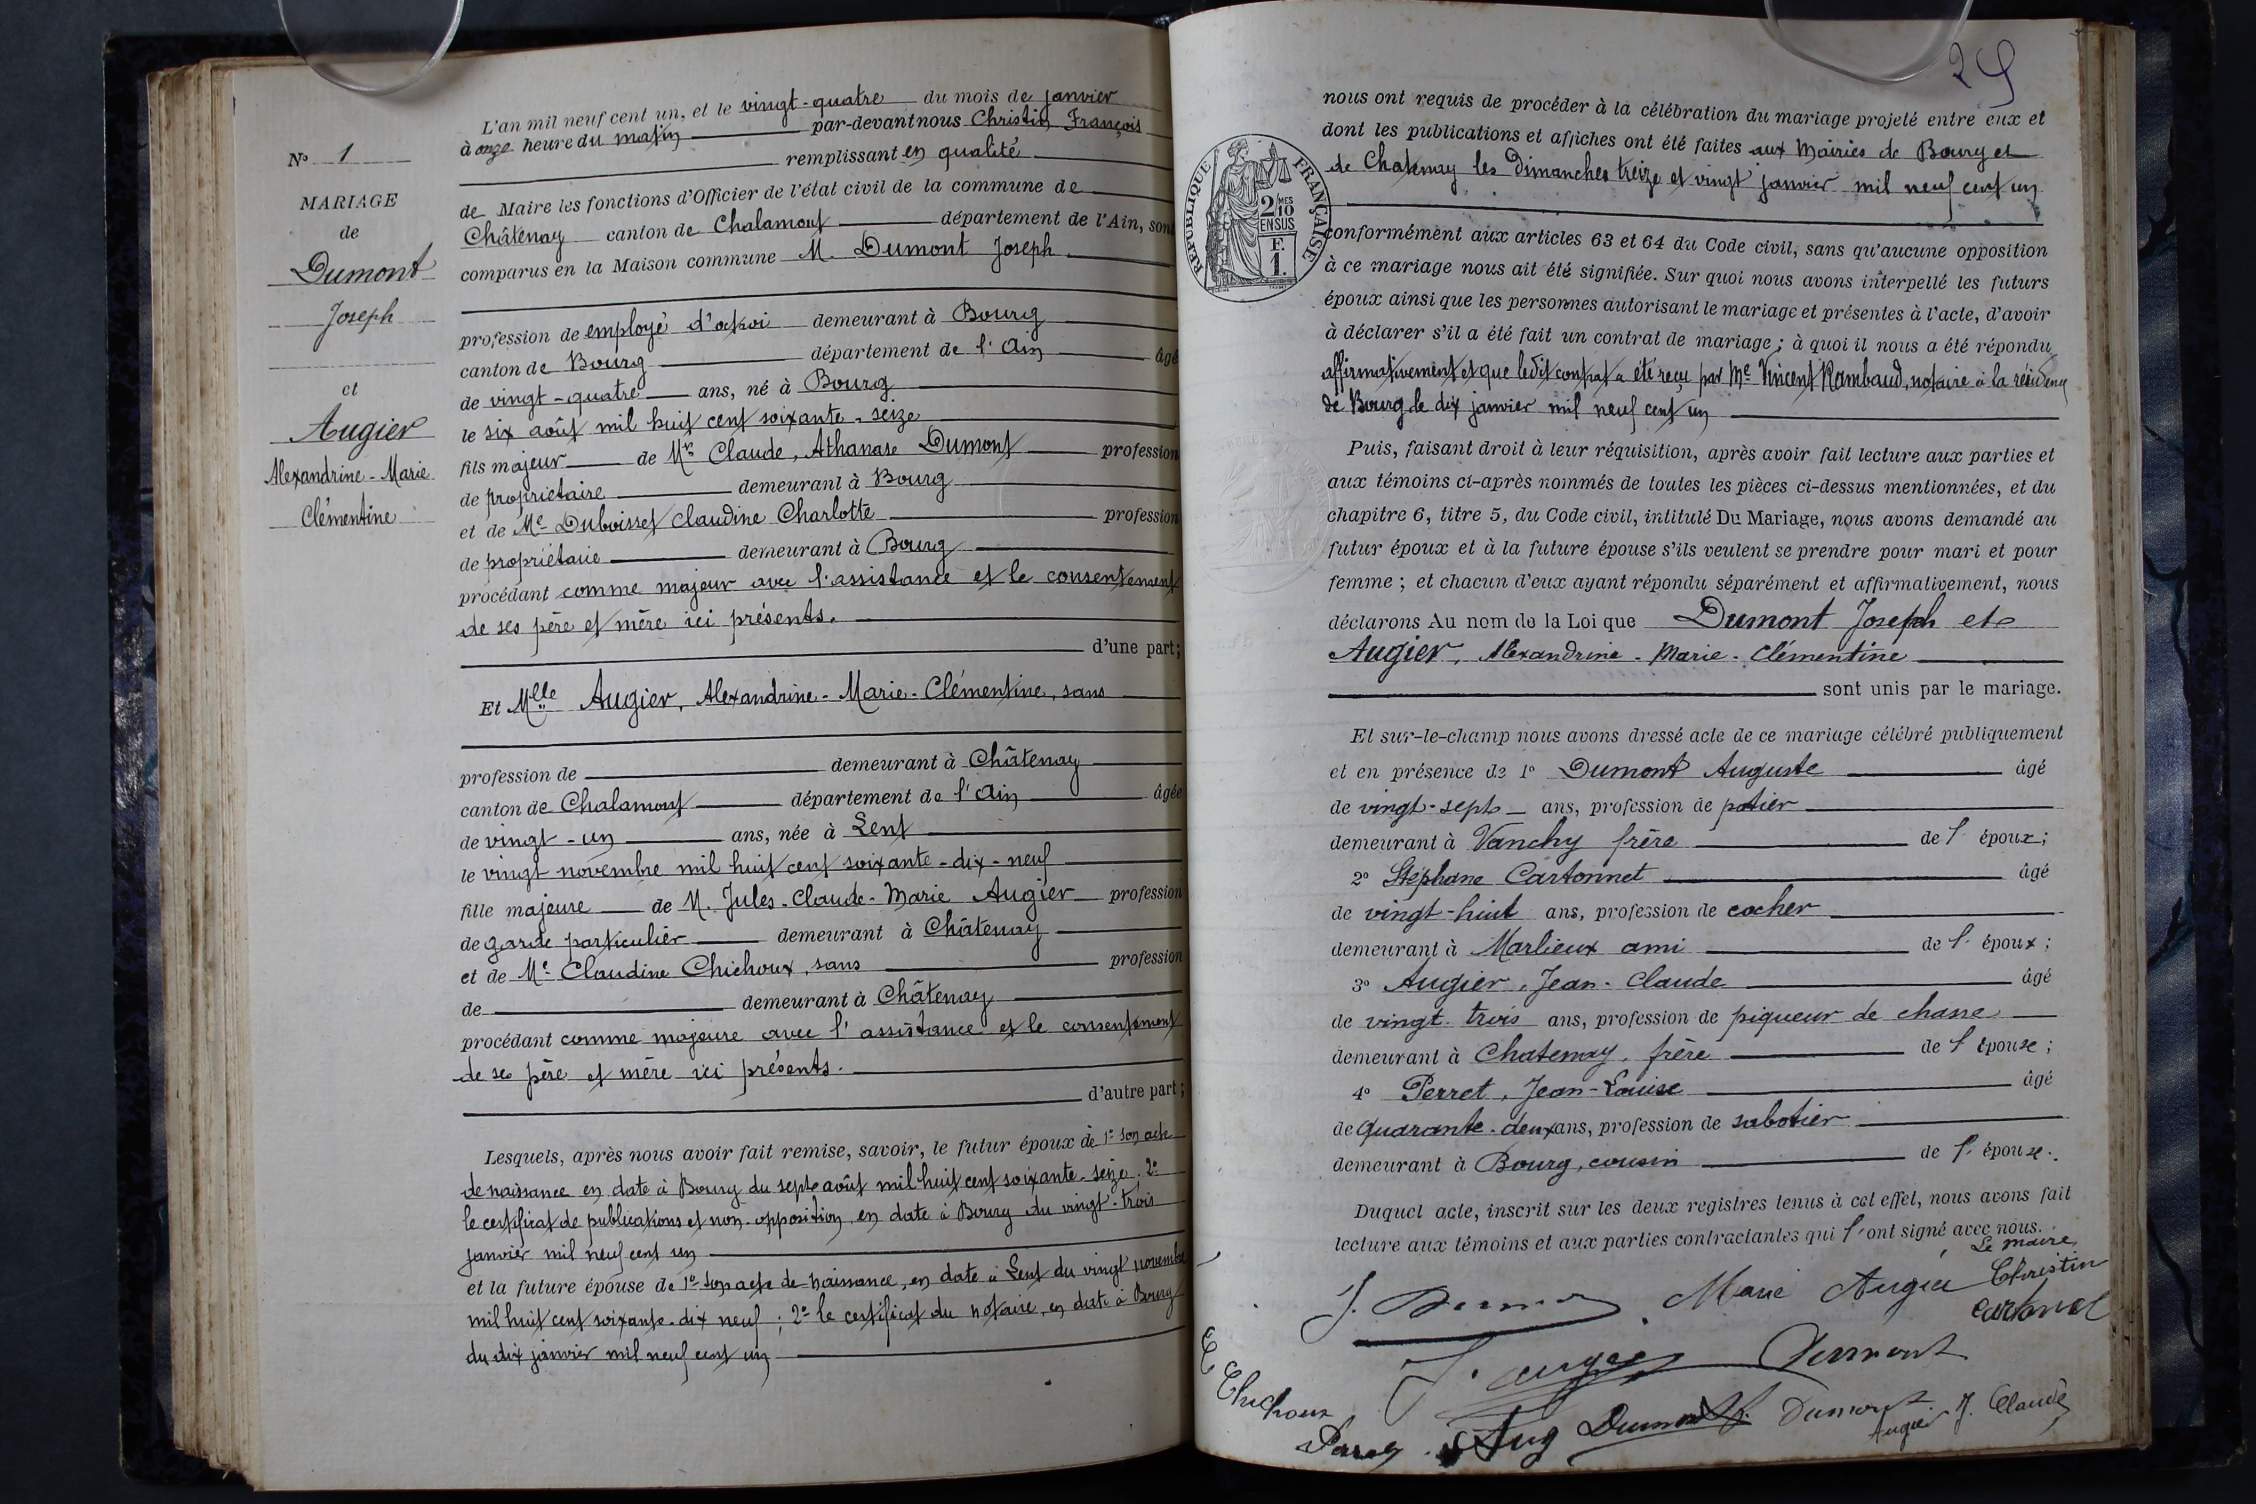 N° 1
MARIAGE
de
Dumont
Joseph
et
Augier
Alexandrine - Marie
Clémentine
L'an mil neuf cent un, et le vingt-quatre du mois de janvier
à onze heure du matin par-devant nous Christin François
remplissant en qualité
de Maire les fonctions d'Officier de l'état civil de la commune de
Châtenay canton de Chalamont département de l'Ain, sont
comparus en la Maison commune M. Dumont Joseph
profession de employé d'octroi demeurant à Bourg
canton de Bourg département de l'Ain âgé
de vingt-quatre ans, né à Bourg
le six août mil huit cent soixante-seize
fils majeur de Mr Claude, Athanase Dumont profession
de propriétaire demeurant à Bourg
et de Me Duboisset Claudine Charlotte profession
de propriétaire demeurant à Bourg
procédant comme majeur avec l'assistance et le consentement
de ses père et mère ici présents.
d'une part;
Et Mlle Augier, Alexandrine-Marie-Clémentine, sans
profession de demeurant à Châtenay
canton de Chalamont département de l'Ain âgée
de vingt-un ans, née à Lent
le vingt novembre mil huit cent soixante-dix-neuf
fille majeure de M. Jules-Claude-Marie Augier profession
de garde particulier demeurant à Châtenay
et de Me Claudine Chichoux, sans profession
de demeurant à Châtenay
procédant comme majeure avec l'assistance et le consentement
de ses père et mère ici présents.
d'autre part;
Lesquels, après nous avoir fait remise, savoir, le futur époux de 1° son acte
de naissance en date à Bourg du sept août mil huit cent soixante-seize; 2°
le certificat de publications et non-opposition, en date à Bourg du vingt-trois
janvier mil neuf cent un
et la future épouse de 1° son acte de naissance, en date à Lent du vingt novembre
mil huit cent soixante-dix neuf; 2° le certificat du notaire, en date à Bourg
du dix janvier mil neuf cent un
29
RÉPUBLIQUE FRANÇAISE
2/10MES
EN SUS
F.
1.
nous ont requis de procéder à la célébration du mariage projeté entre eux et
dont les publications et affiches ont été faites aux Mairies de Bourg et
de Chatenay les Dimanches treize et vingt janvier mil neuf cent un
conformément aux articles 63 et 64 du Code civil, sans qu'aucune opposition
à ce mariage nous ait été signifiée. Sur quoi nous avons interpellé les futurs
époux ainsi que les personnes autorisant le mariage et présentes à l'acte, d'avoir
à déclarer s'il a été fait un contrat de mariage; à quoi il nous a été répondu
affirmativement et que ledit contrat a été reçu par Me Vincent Rambaud, notaire à la résidence
de Bourg le dix janvier mil neuf cent un
Puis, faisant droit à leur réquisition, après avoir fait lecture aux parties et
aux témoins ci-après nommés de toutes les pièces ci-dessus mentionnées, et du
chapitre 6, titre 5, du Code civil, intitulé Du Mariage, nous avons demandé au
futur époux et à la future épouse s'ils veulent se prendre pour mari et pour
femme; et chacun d'eux ayant répondu séparément et affirmativement, nous
déclarons Au nom de la Loi que Dumont Joseph et
Augier, Alexandrine-Marie-Clémentine
sont unis par le mariage.
Et sur-le-champ nous avons dressé acte de ce mariage célébré publiquement
et en présence de 1° Dumont Auguste âgé
de vingt-sept ans, profession de potier
demeurant à Vanchy frère de l'époux;
2° Stéphane Cartonnet âgé
de vingt-huit ans, profession de cocher
demeurant à Marlieux ami de l'époux;
3° Augier, Jean-Claude âgé
de vingt-trois ans, profession de piqueur de chasse
demeurant à Chatenay, frère de l'épouse;
4° Perret, Jean-Louise âgé
de quarante-deux ans, profession de sabotier
demeurant à Bourg, cousin de l'épouse.
Duquel acte, inscrit sur les deux registres tenus à cet effet, nous avons fait
lecture aux témoins et aux parties contractantes qui l'ont signé avec nous.
Le maire
J. Dumont Marie Augier Christin
Cartonnet
J. augier Dumont
C Chichoux
Perret Aug Dumont Dumont Augier J. Claude